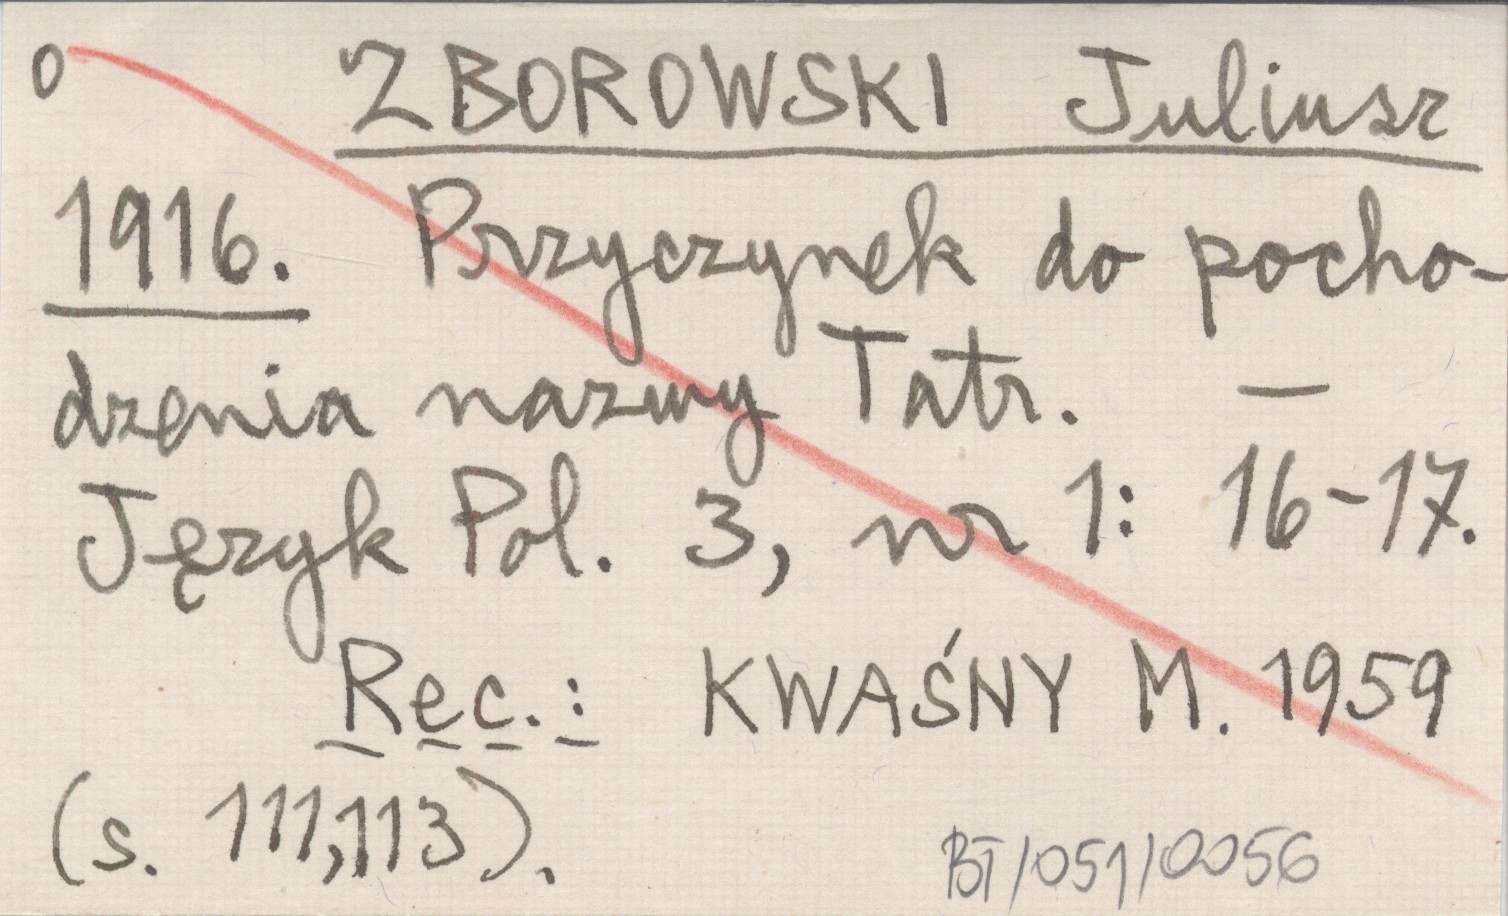 o ZBOROWSKI Juliusz
1916. Przyczynek do pocho-
dzenia nazwy Tatr. —
Język Pol. 3, nr 1: 16-17.
Rec.: KWAŚNY M. 1959
(s. 111,113).
BT/051/0056